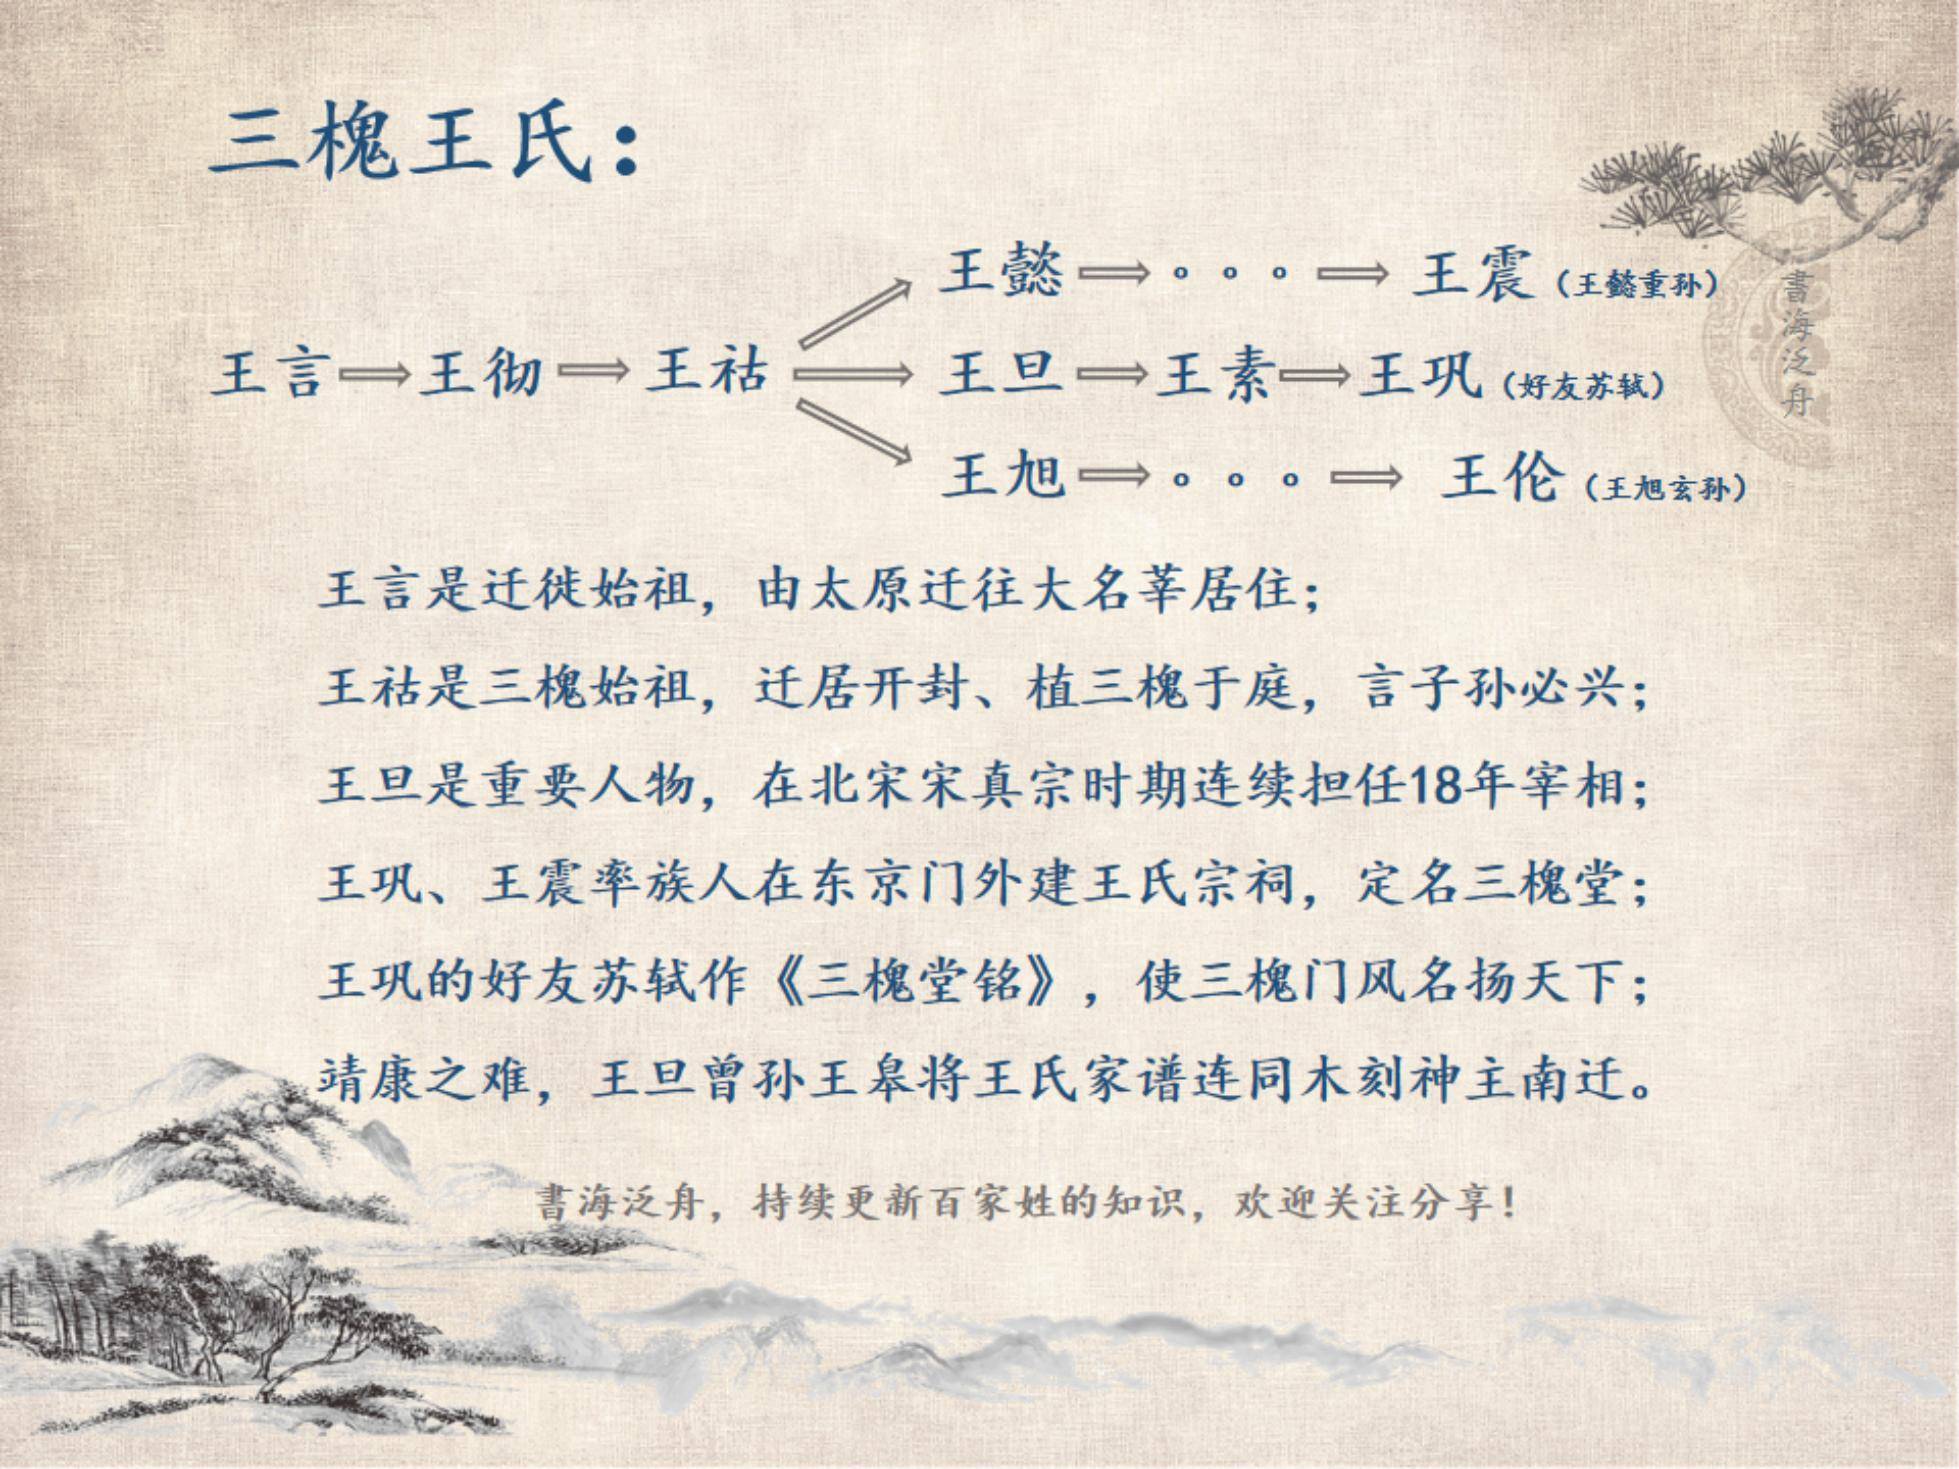 三槐王氏：
王懿 ⇒ 。。。 ⇒ 王震（王懿重孙）
王言 ⇒ 王彻 ⇒ 王祜 ⇒ 王旦 ⇒ 王素 ⇒ 王巩（好友苏轼）
王旭 ⇒ 。。。 ⇒ 王伦（王旭玄孙）
書海泛舟
王言是迁徙始祖，由太原迁往大名莘居住；
王祜是三槐始祖，迁居开封、植三槐于庭，言子孙必兴；
王旦是重要人物，在北宋宋真宗时期连续担任18年宰相；
王巩、王震率族人在东京门外建王氏宗祠，定名三槐堂；
王巩的好友苏轼作《三槐堂铭》，使三槐门风名扬天下；
靖康之难，王旦曾孙王皋将王氏家谱连同木刻神主南迁。
書海泛舟，持续更新百家姓的知识，欢迎关注分享！